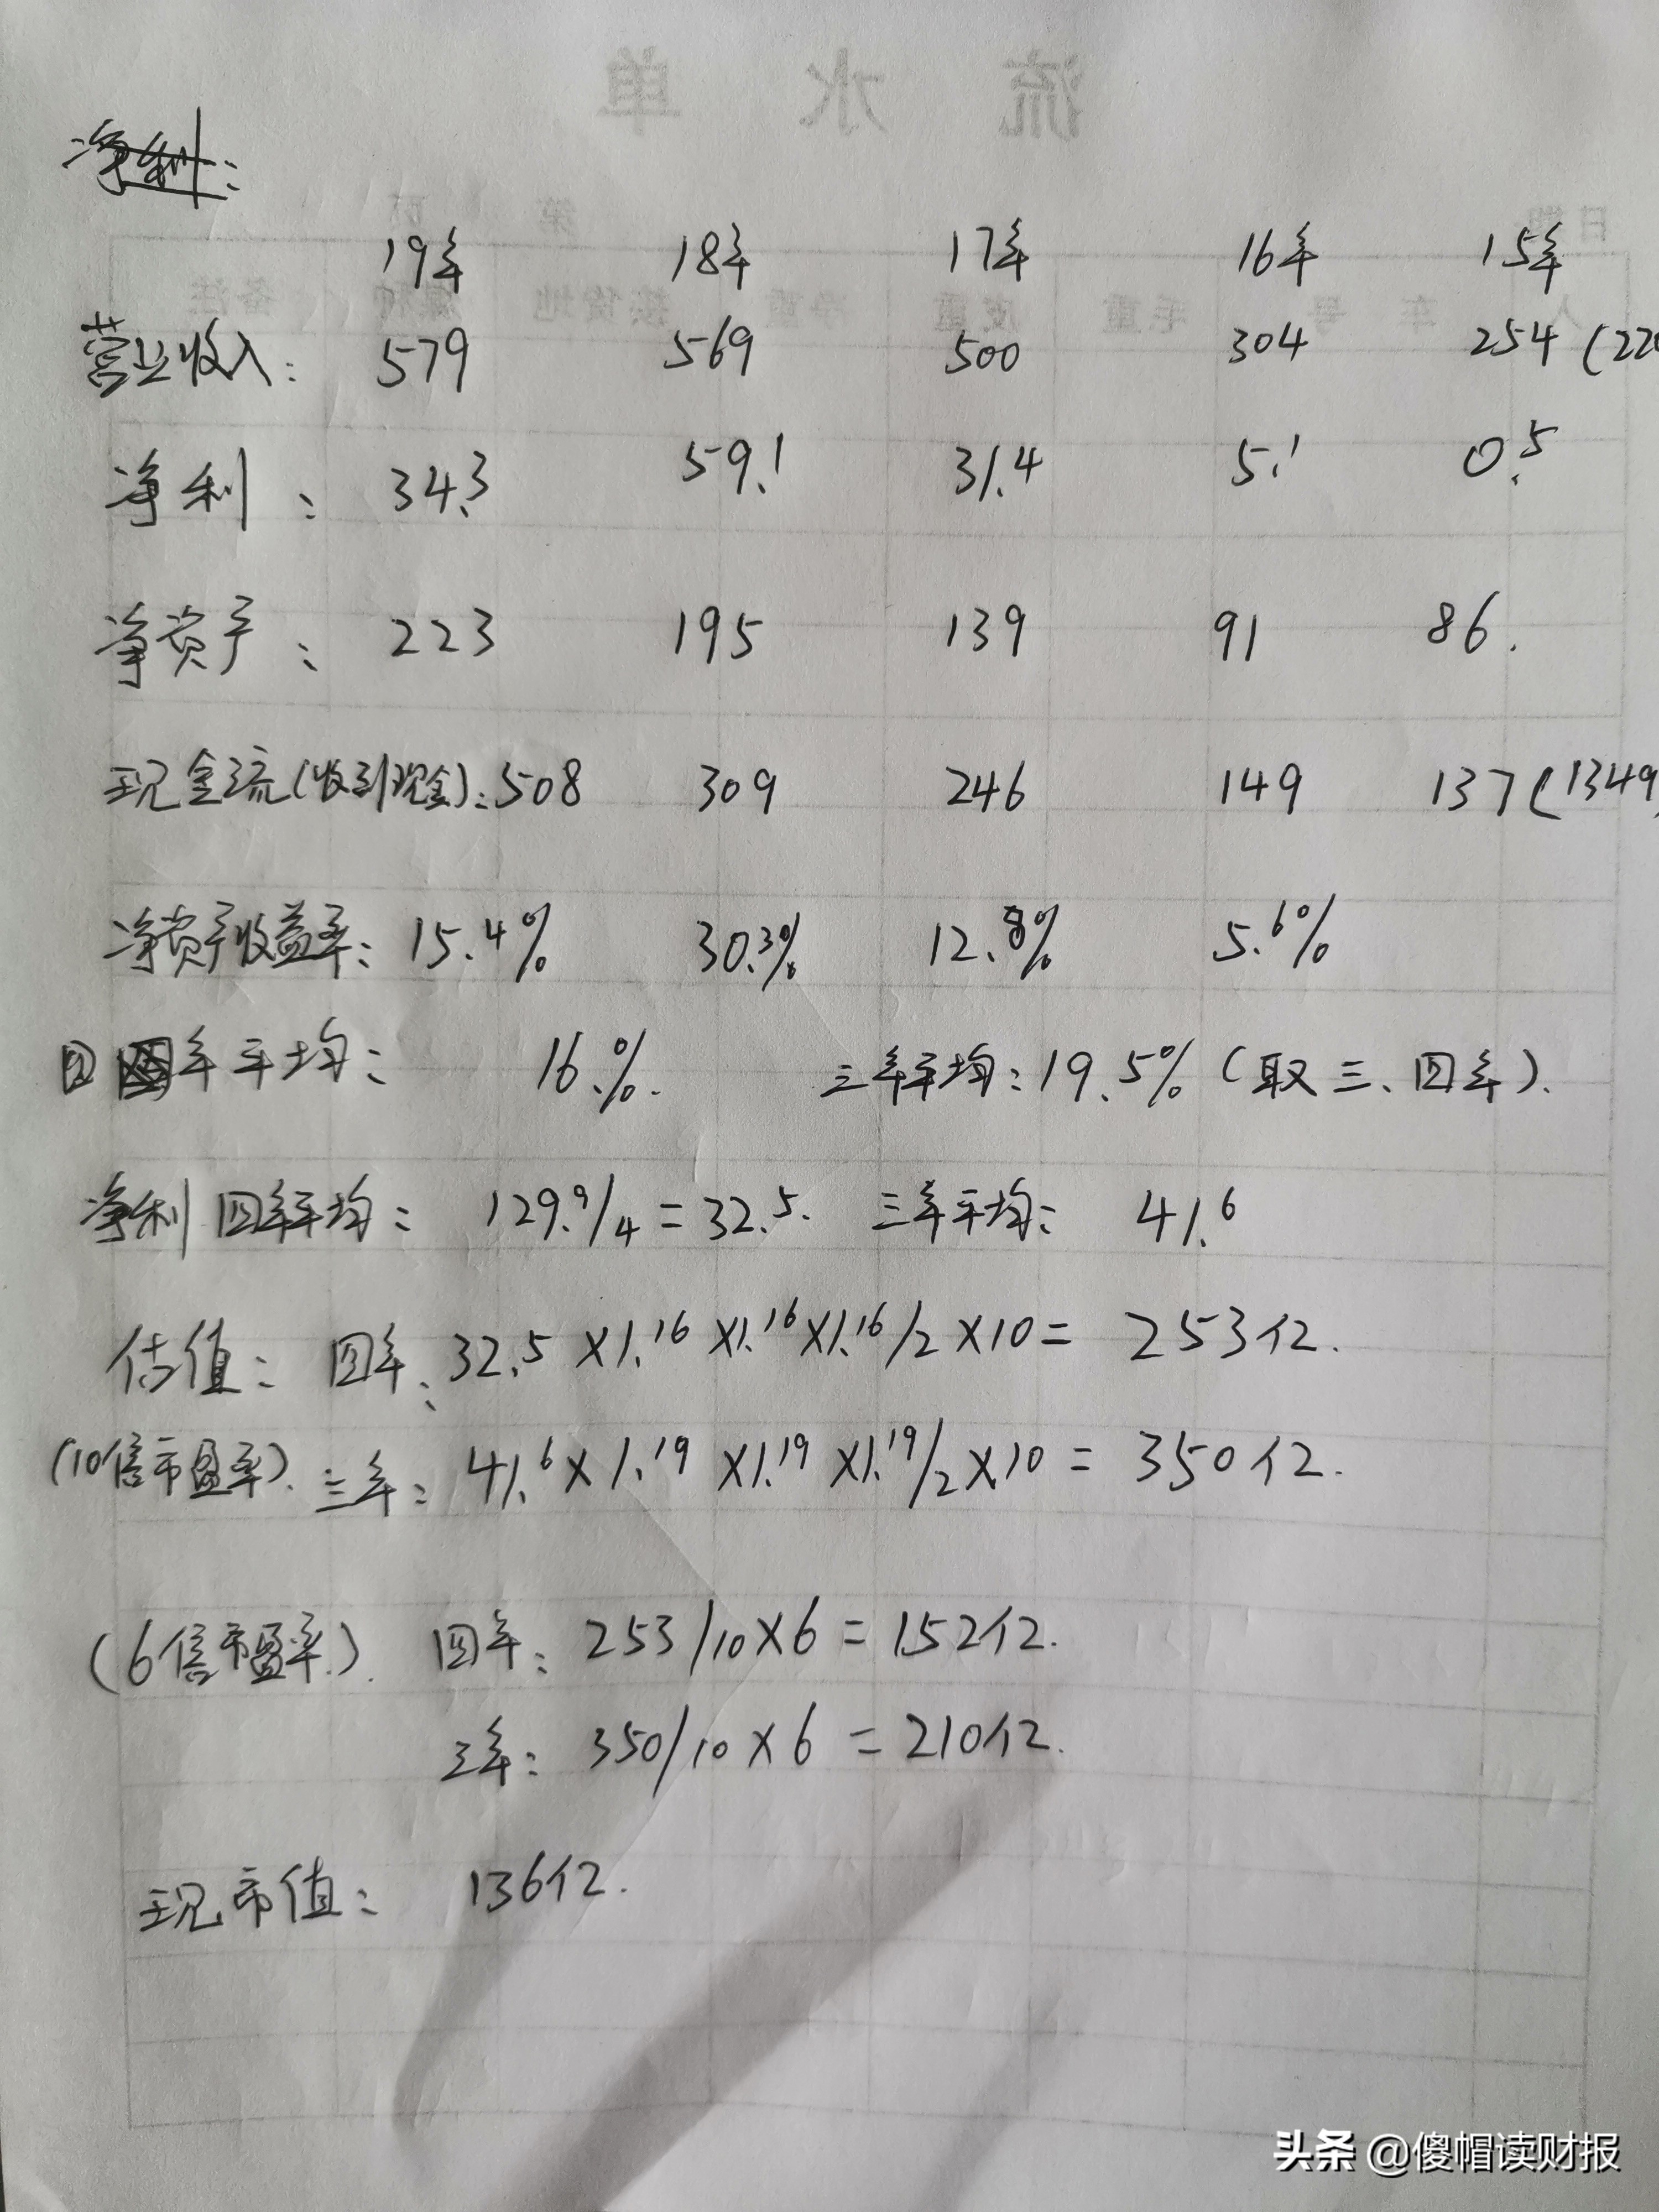 流 水 单
净利:
19年 18年 17年 16年 15年
营业收入: 579 569 500 304 254 (220
净利: 34.3 59.1 31.4 5.1 0.5
净资产: 223 195 139 91 86.
现金流(收到现金): 508 309 246 149 137 (1349
净资产收益率: 15.4% 30.3% 12.8% 5.6%
四年平均: 16.%. 三年平均: 19.5% (取三、四年).
净利四年平均: 129.9/4 = 32.5. 三年平均: 41.6
估值: 四年: 32.5 X1.16 X1.16 X1.16/2 X10 = 253亿.
(10倍市盈率). 三年: 41.6 X 1.19 X1.19 X1.19/2 X10 = 350亿.
(6倍市盈率). 四年: 253/10X6 = 152亿.
三年: 350/10 X 6 = 210亿.
现市值: 136亿.
头条 @傻帽读财报